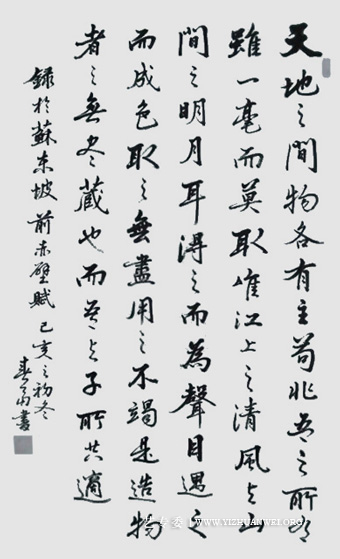 天地之間物各有主苟非吾之所有
雖一毫而莫取惟江上之清風与山
間之明月耳得之而為聲目遇之
而成色取之無盡用之不竭是造物
者之無尽藏也而吾与子所共適
録於蘇东坡前赤壁賦 己亥之初冬
書
WWW.YIZHUANWEI.ORG